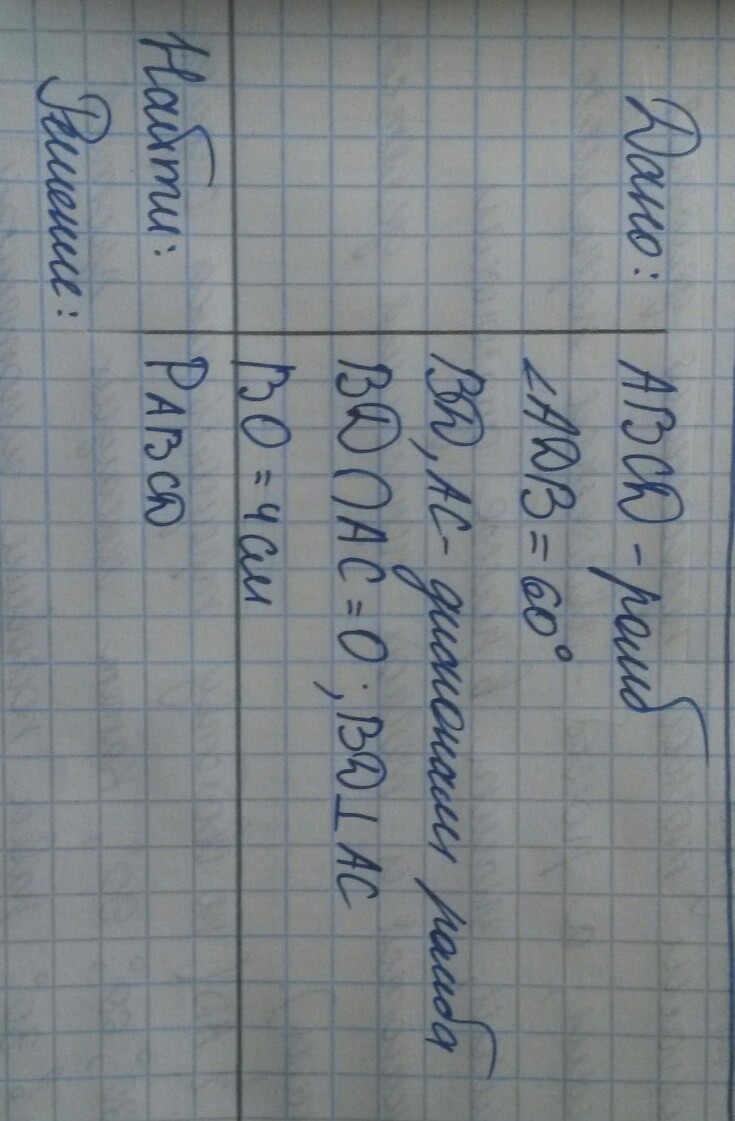 Дано: ABCD - ромб
∠ADB = 60°
BD, AC - диагонали ромба
BD ∩ AC = O; BD ⊥ AC
BO = 4 см
Найти: P ABCD
Решение: